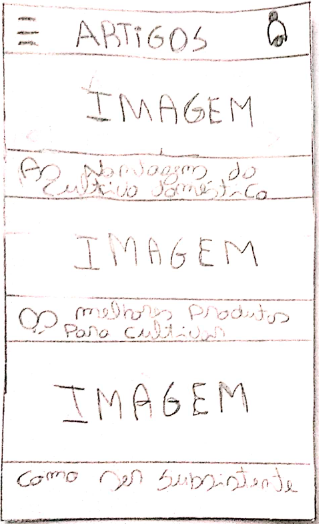 ARTIGOS
IMAGEM
As Vantagens do
Cultivo doméstico
IMAGEM
Os melhores Produtos
Para cultivar
IMAGEM
Como ser Subsistente